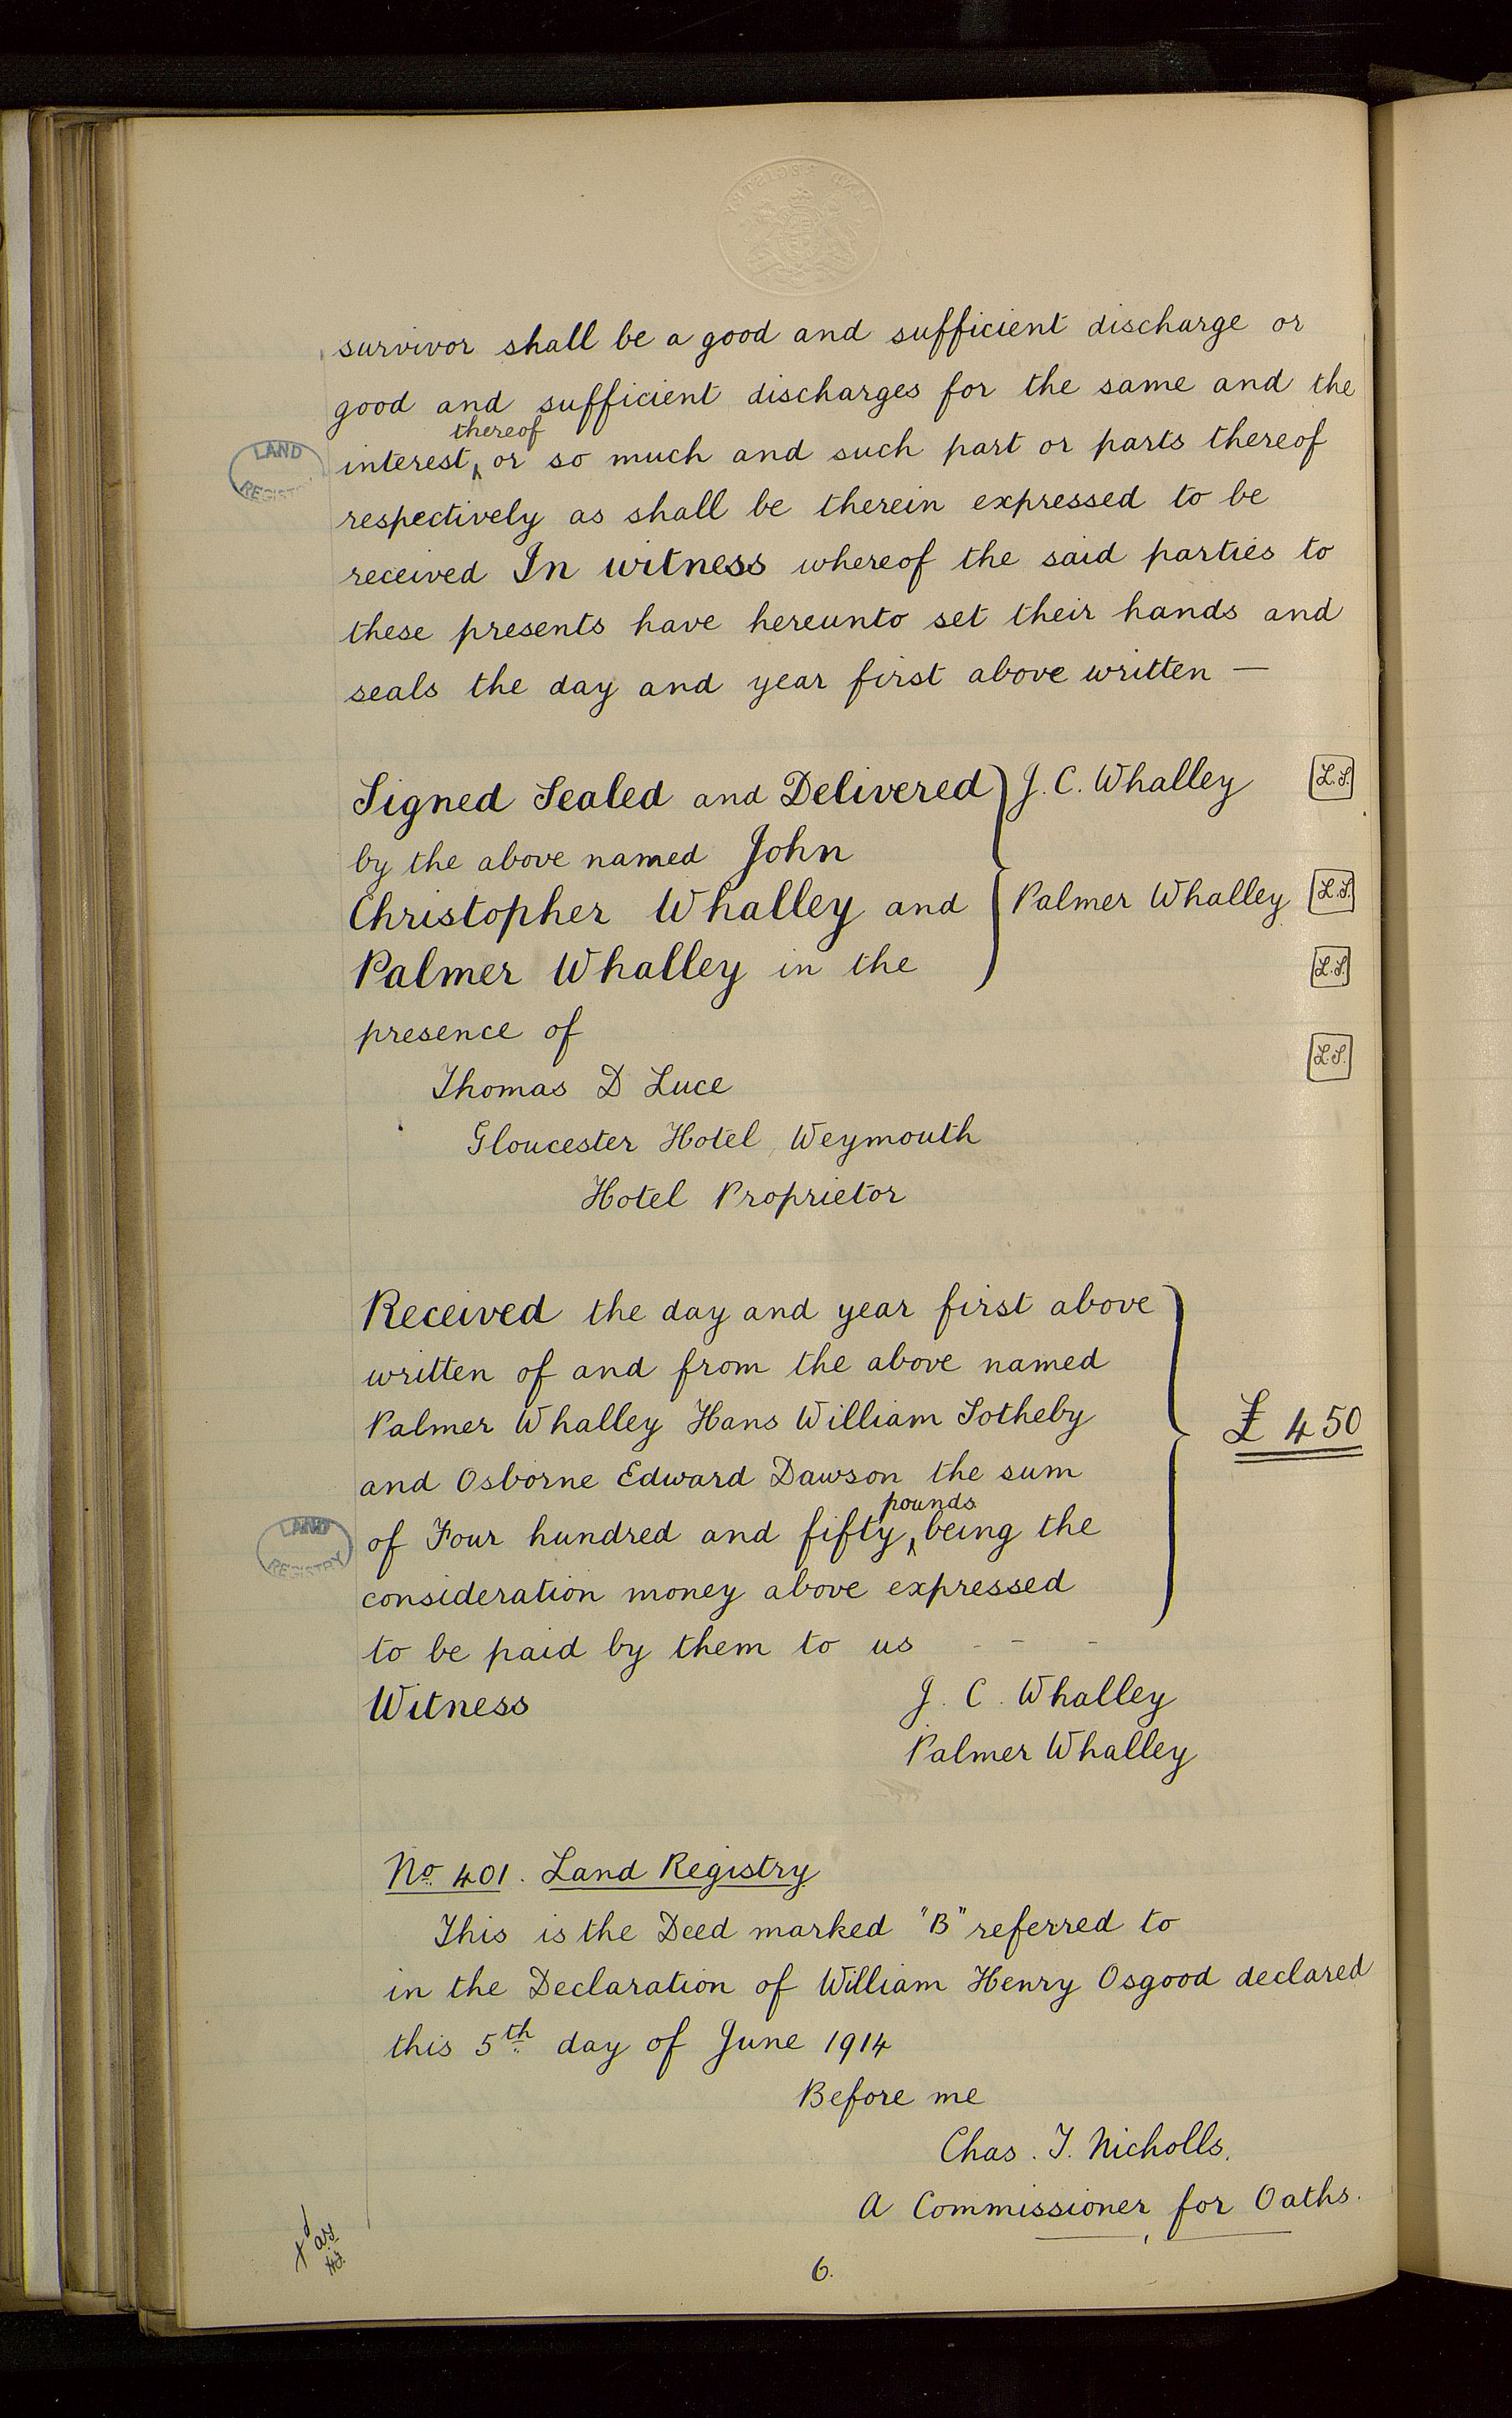 LAND REGISTRY
survivor shall be a good and sufficient discharge or
good and sufficient discharges for the same and the
thereof
interest ‸ or so much and such part or parts thereof
LAND REGISTRY
respectively as shall be therein expressed to be
received In witness whereof the said parties to
these presents have hereunto set their hands and
seals the day and year first above written —
Signed Sealed and Delivered J. C. Whalley L.S.
by the above named John
Christopher Whalley and Palmer Whalley L.S.
Palmer Whalley in the L.S.
presence of L.S.
Thomas D Luce
Gloucester Hotel, Weymouth
Hotel Proprietor
Received the day and year first above
written of and from the above named
Palmer Whalley Hans William Sotheby
£450
and Osborne Edward Dawson the sum
pounds
of Four hundred and fifty ‸ being the
LAND REGISTRY
consideration money above expressed
to be paid by them to us - - -
Witness J. C. Whalley
Palmer Whalley
No. 401. Land Registry
This is the Deed marked "B" referred to
in the Declaration of William Henry Osgood declared
this 5th day of June 1914
Before me
Chas. T. Nicholls.
A Commissioner for Oaths.
6.